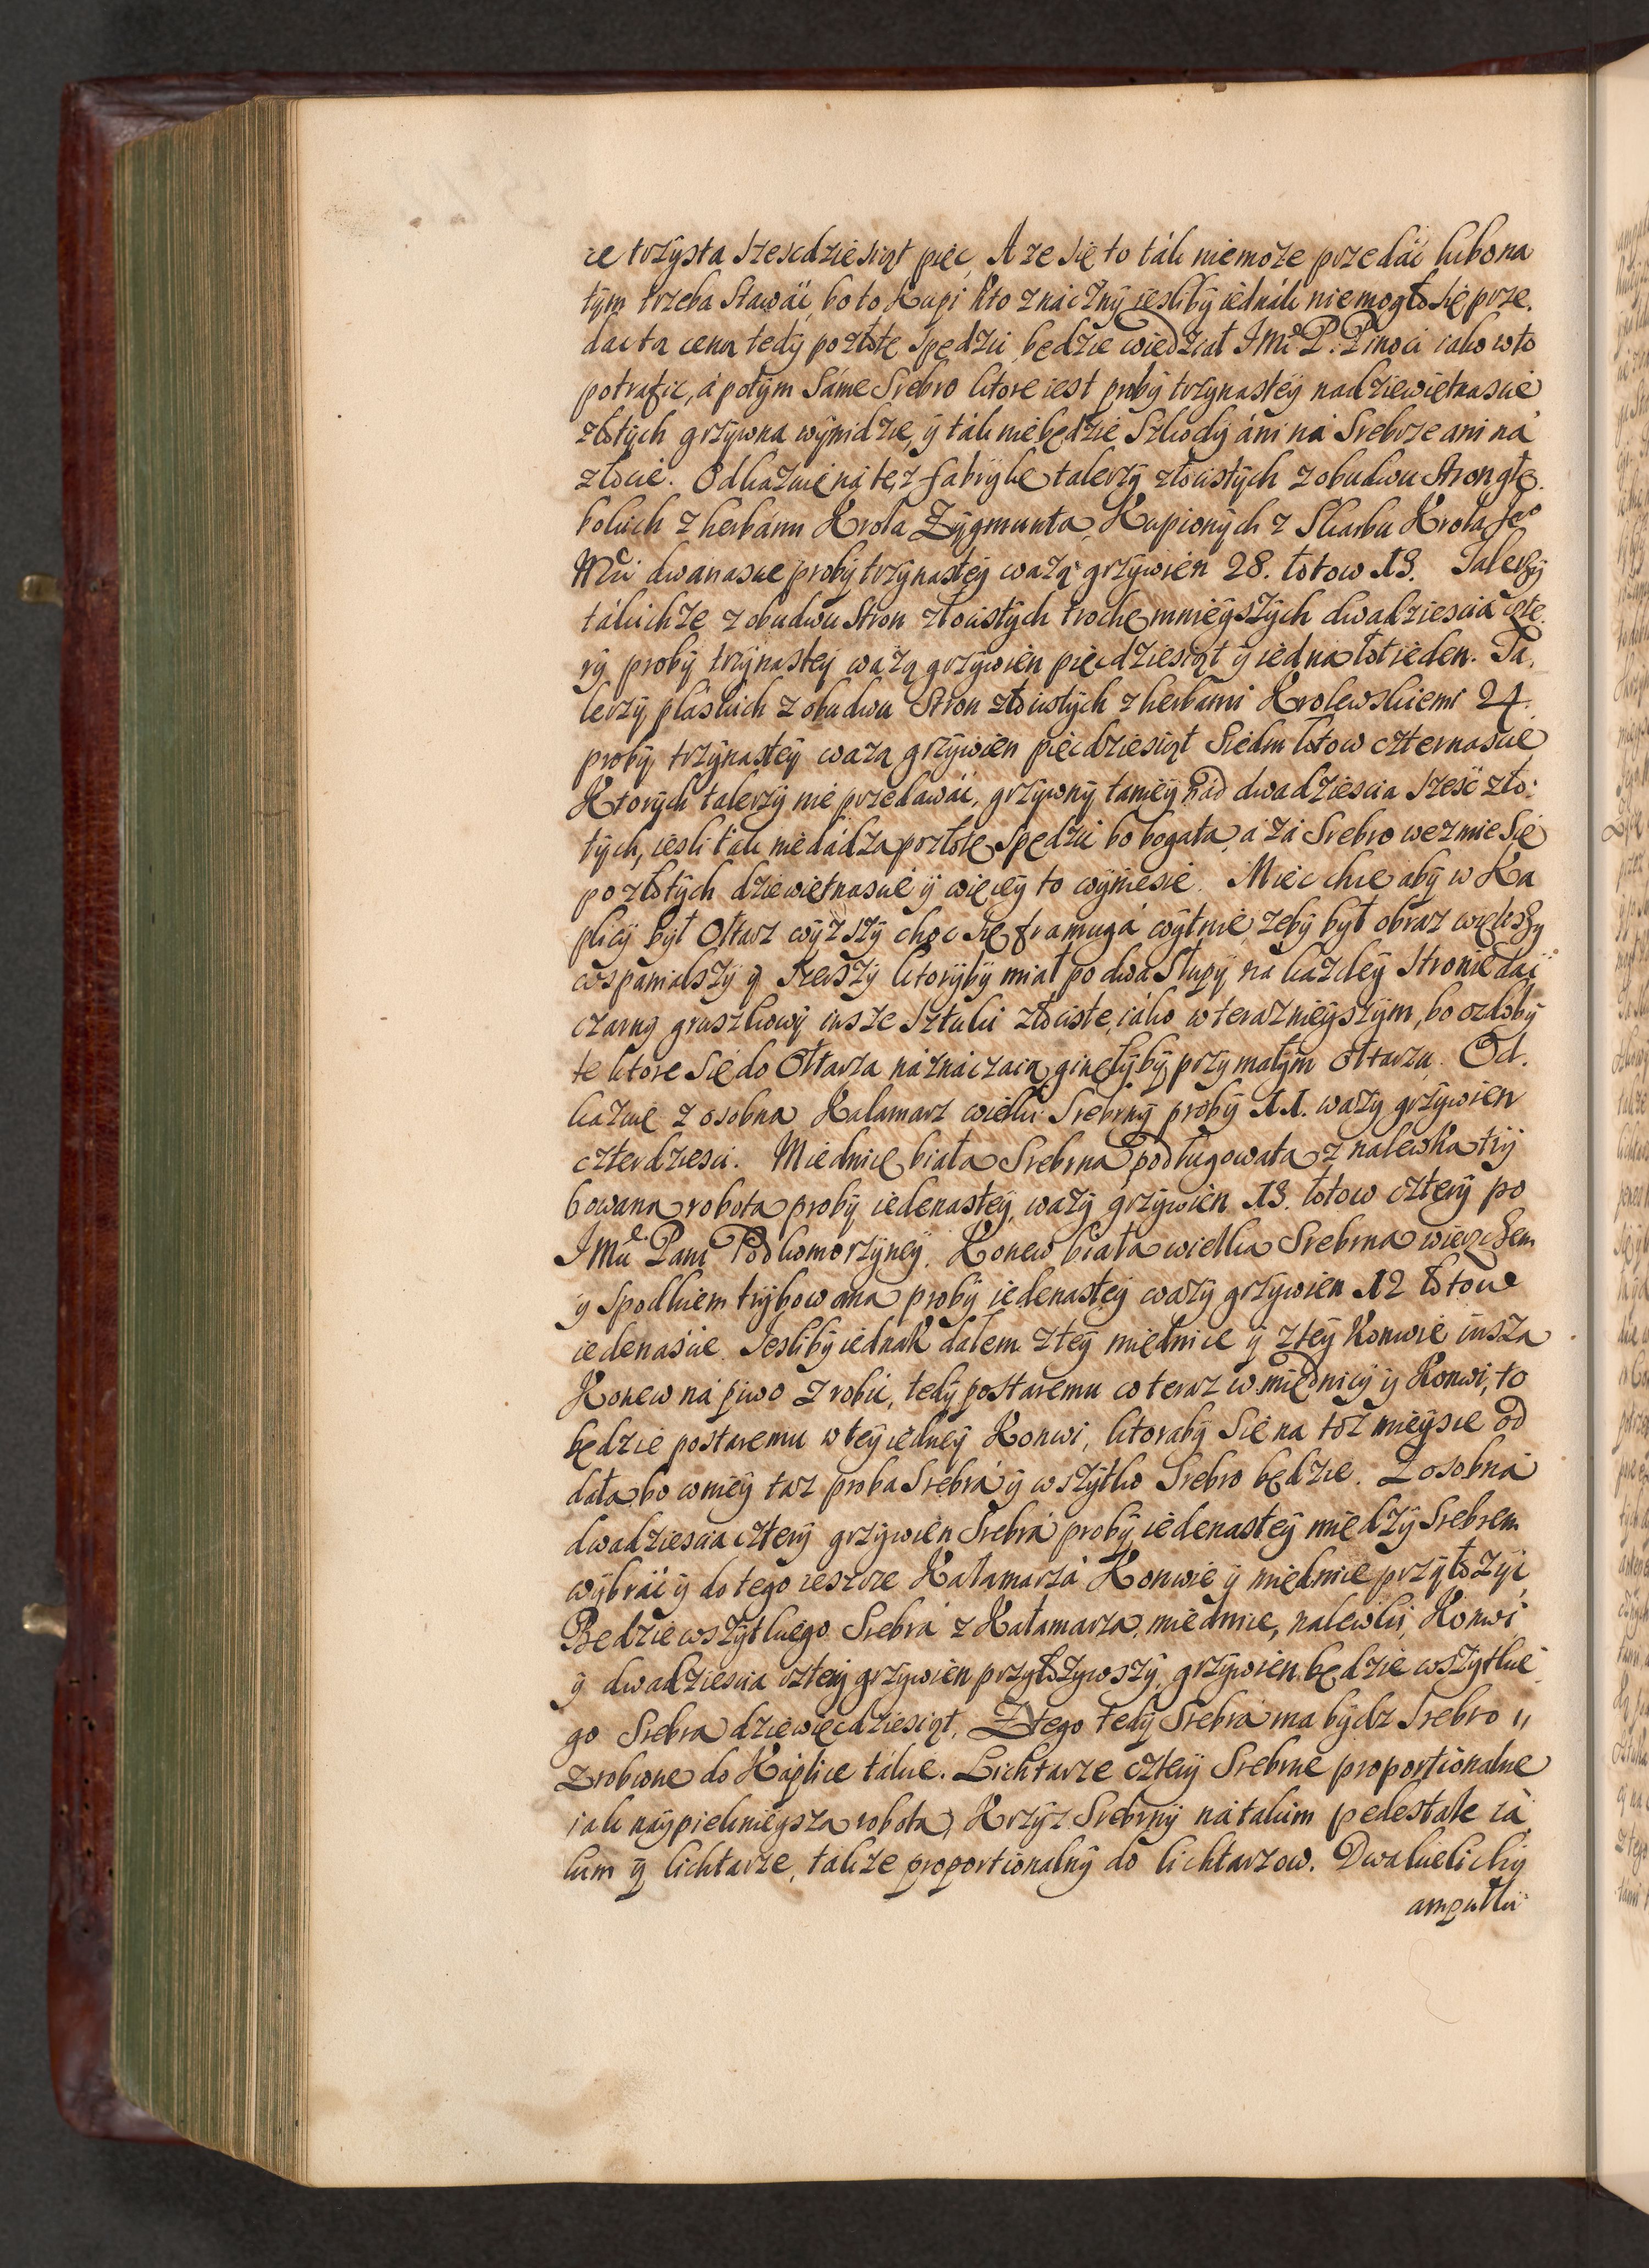 ce trzysta szescdziesiąt pięc, A ze się to ták niemoże przedáć lubo na
tym trzeba stawáć, bo to Kupi kto znáczny iesliby iednák niemogło się prze.
dac ta cena tedy pozłotę spędzić będzie wiedział JMć P. Pinoci iako w to
potrafic, á potym sáme Srebro ktore iest proby trzynastey na dziewiętnascie
złotych grzywna wynidzie, y ták niebędzie Szkody áni ná Srebrze ani ná
złocie. Odkazuię ná tęż fabrykę talerzy złocistych z obudwu stron głę.
bokich z herbámi Krola Zygmunta, Kupionych z Skarbu Krola Jeo
Mći dwanascie proby trzynastey ważą grzywien 28. łotow 13. Talerzy
tákichże z obudwu stron złocistych trochę mnieyszych dwadziescia czte.
ry proby trzynastey ważą grzywien pięcdziesiąt y iedna łot ieden. Ta.
lerzy pláskich z obudwu Stron złocistych z herbami Krolewskiemi 24.
proby trzynastey ważą grzywien pięcdziesiąt siedm łotow czternascie
Ktorych talerzy nie przedawáć, grzywny taniey nád dwadziescia szesć zło.
tych, iesli ták niedádzą pozłotę spędzić bo bogata, a zá Srebro wezmie się
po złotych dziewiętnascie y więcey to wyniesie. Miec chcę aby w Ka
plicy był Ołtarz wyższy choc się framugá wytnie, zeby był obraz większy
wspanialszy y szerszy ktoryby miał po dwa słupy na kazdey stronie dać
czarny gruszkowy insze sztuki złociste, iáko w teraznieyszym, bo ozdoby
te ktore się do Ołtarza náznaczaią ginęłyby przy małym ołtarzu. Od.
kazuię z osobna Kałamarz wielki Srebrny proby 11. waży grzywien
czterdziesci. Miednicę białą Srebrną podługowatą z nalewką try
bowaną robotą proby iedenastey, waży grzywien 13. łotow cztery po
JMći Pani Podkomorzyney. Konew biała wielka Srebrna wierzchem
y spodkiem trybowana proby iedenastey waży grzywien 12 łotow
iedenaście. Jesliby iednak dałem z tey miednice y z tey Konwie inszą
Konew ná piwo zrobić, tedy postaremu co teraz w miednicy y Konwi, to
będzie postaremu w tey iedney Konwi, ktoraby się na toż mieysce od
dała bo w niey taz proba Srebrá y wszytko Srebro będzie. Z osobná
dwadziescia cztery grzywien Srebrá proby iedenastey między Srebrem
wybráć y do tego ieszcze Kałamarzá Konwie y miednice przyłożyć
Będzie wszytkiego Srebrá z Kałamarza, miednice, nalewki, Konwi,
y dwadziescia cztery grzywien przyłożywszy, grzywien będzie wszytkie
go Srebra dziewięcdziesiąt. Z tego tedy Srebrá ma bydz Srebro
zrobione do Káplice tákie. Lichtarze cztery Srebrne proportionalne
iák naypieknieysza robota, Krzyż Srebrny ná takim pedestale iá
kim y lichtarze, tákze proportionalny do lichtarzow. Dwa kielichy
ampułki